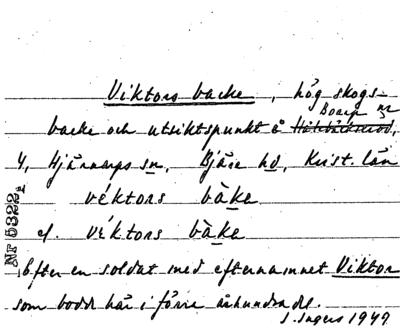 Viktors backe, hög skogs-
Boarp nr
backe och utsiktspunkt å
4, Hjärnarps sn, Bjäre hd, Krist. län
véktors bàke
el. véktors bàke
Efter en soldat med efternamnet Viktor
som bodde här i förra århundradet.
I. Ingers 1949
Nr 5322